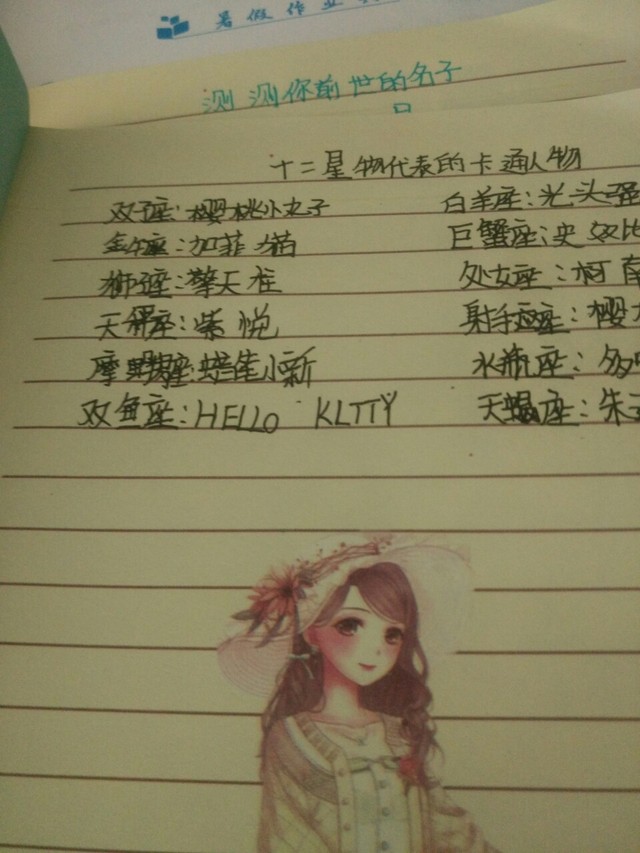 暑假作业
测测你前世的名子
十二星物代表的卡通人物
双子座:樱桃小丸子 白羊座:光头强
金牛座:加菲猫 巨蟹座:史奴比
狮子座:擎天柱 处女座:柯南
天秤座:紫悦 射手座:樱
摩羯座:蜡笔小新 水瓶座:多
双鱼座:HELLO KLTTY 天蝎座:朱